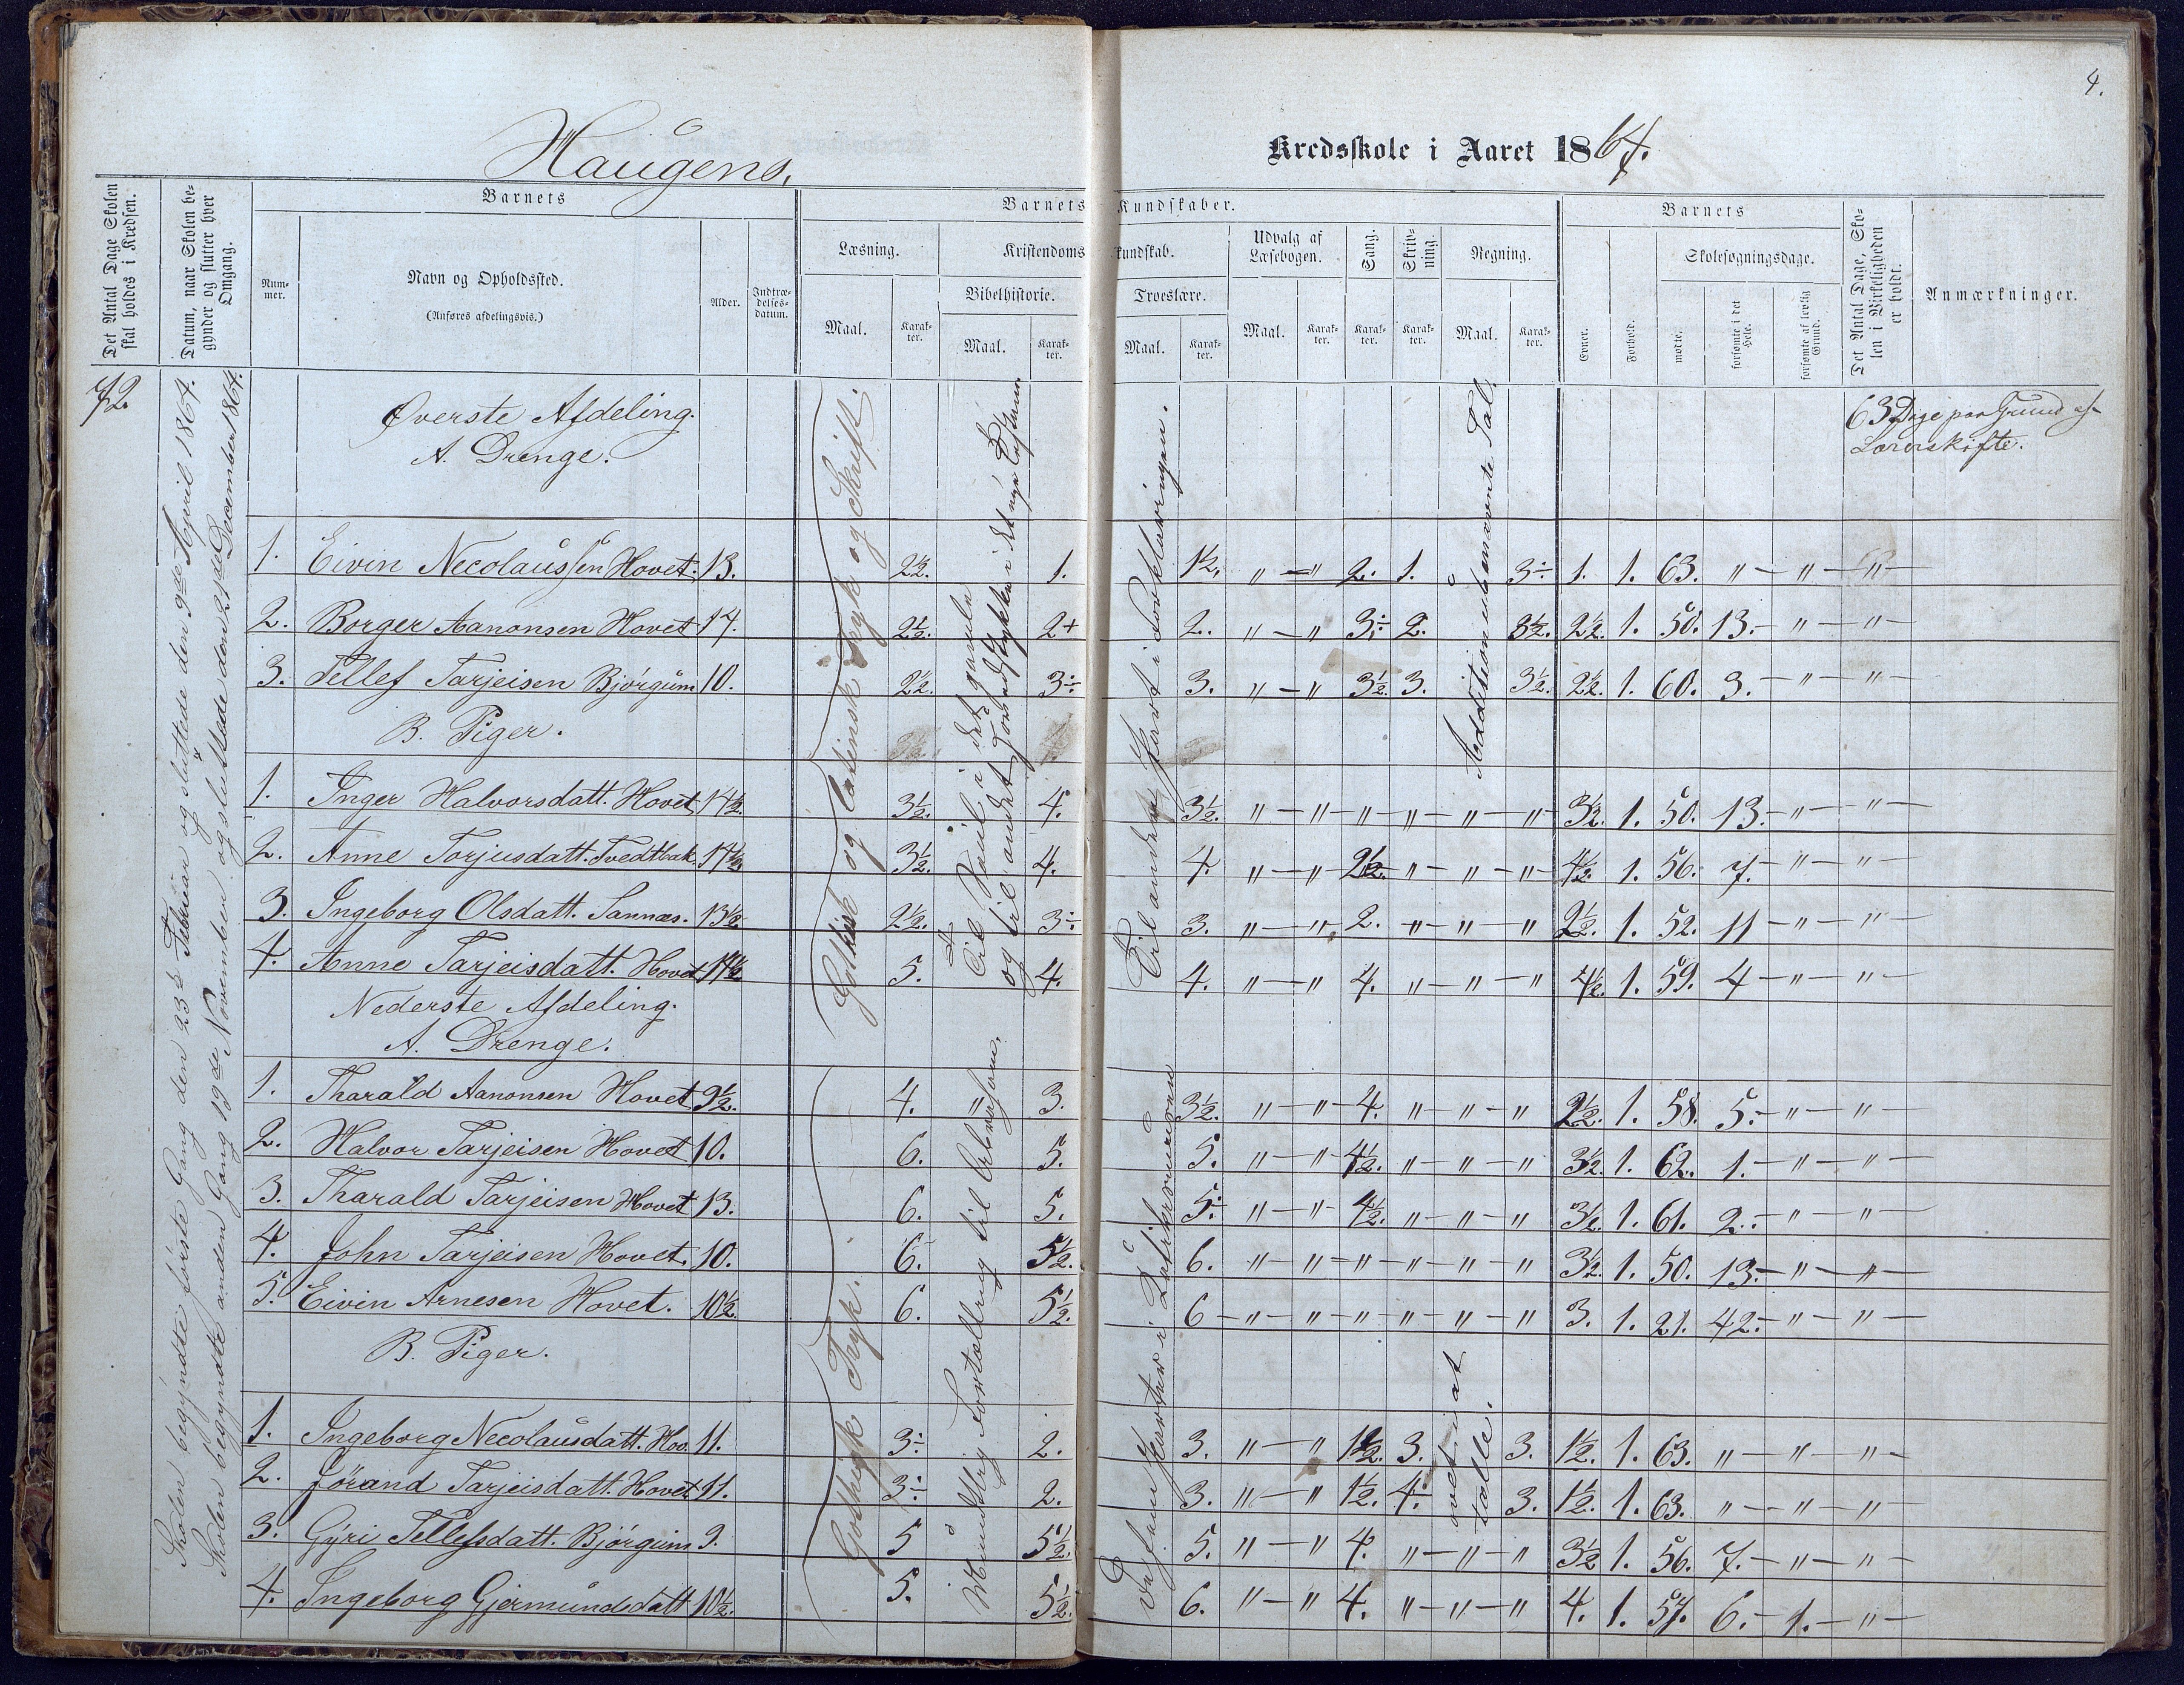 4.
Haugens, Kredsskole i Aaret 1864.
Det Antal Dage Skolen skal holdes i Kredsen.
Datum, naar Skolen begynder og slutter hver Omgang.
Barnets
Nummer.
Navn og Opholdssted.
(Anføres afdelingsvis.)
Alder.
Indtrædelsesdatum.
Barnets Kundskaber.
Læsning.
Maal. Karakter.
Kristendomskundskab.
Bibelhistorie.
Maal. Karakter.
Troeslære.
Maal. Karakter.
Udvalg af Læsebogen.
Maal. Karakter.
Sang.
Karakter.
Skrivning.
Karakter.
Regning.
Maal. Karakter.
Barnets
Evner.
Forhold.
Skolesøgningsdage.
mødte.
forsømte i det Hele.
forsømte af lovlig Grund.
Det Antal Dage, Skolen i Virkeligheden er holdt.
Anmærkninger.
72.
Skolen begyndte første Gang den 23d Februar og sluttede den 9de April 1864.
Skolen begyndte anden Gang 19de November og sluttede den 21de December 1864.
63 Dage paa Grund af
Lærerskifte.
Øverste Afdeling.
A. Drenge.
Gothisk og latinsk Tryk og Skrift.
Additioni ubenævnte Tal.
1. Eivin Necolaussen Hovet. 13. 2½. 1. 1½. " — " 2. 1. 3÷ 1. 1. 63. " — " — " —
2. Borger Aanonsen Hovet 14. 2½. 2+ 2. " — " 3÷ 2. 3½. 2½. 1. 50. 13. — " — " —
3. Tellef Tarjeisen Bjørgum 10. 2½. 3÷ 3. " — " 3½. 3. 3½. 2½. 1. 60. 3. — " — " —
B. Piger.
1. Inger Halvorsdatt. Hovet 14½. 3½. 4. 3½. " — " — " — " — " — " 3½. 1. 50. 13. — " — " —
2. Anne Torjusdatt. Tvedtbak. 14½. 3½. 4. 4. " — " 2½. " — " — " 4½. 1. 56. 7. — " — " —
3. Ingeborg Olsdatt. Sannæs. 13½. 2½. 3÷ 3. " — " 2. " — " — " 2½. 1. 52. 11 — " — " —
4. Anne Tarjeisdatt. Hovet 14½. 5. 4. 4. " — " 4. " — " — " 4½. 1. 59. 4 — " — " —
Nederste Afdeling.
A. Drenge.
Gothisk Tryk.
1. Tharald Aanonsen Hovet 9½. 4. " 3. 3½. " — " — 4. " — " — " 2½. 1. 58. 5. — " — " —
2. Halvor Tarjeisen Hovet 10. 6. 5. 5. " — " 4½. " — " — " 3½. 1. 62. 1. — " — " —
3. Tharald Tarjeisen Hovet 13. 6. 5. 5÷ " — " 4½. " — " — " 3½. 1. 61. 2. — " — " —
4. John Tarjeisen Hovet. 10. 6. 5½. 6. " — " — " — " — " — " 3½. 1. 50. 13. — " — " —
5. Eivin Arnesen Hovet. 10½. 6. 5½. 6 — " — " — " — " — " — " 3. 1. 21. 42. — " — " —
B. Piger.
1. Ingeborg Necolausdatt. Hov. 11. 3÷ 2. 3. " — " 1½. 3. 3. 1½. 1. 63. " — " — " —
2. Jørand Tarjeisdatt. Hovet 11. 3÷ 2. 3. " — " 1½. 4. 3. 1½. 1. 63. " — " — " —
3. Gyri Tellefsdatt. Bjørgum 9. 5 5½. 5. " — " 4. " — " — " 3½ 1. 56. 7. — " — " —
4. Ingeborg Gjermundsdatt 10½. 5. 5½. 6. " — " 4. " — " — " 4. 1. 57. 6. — 1. — " —